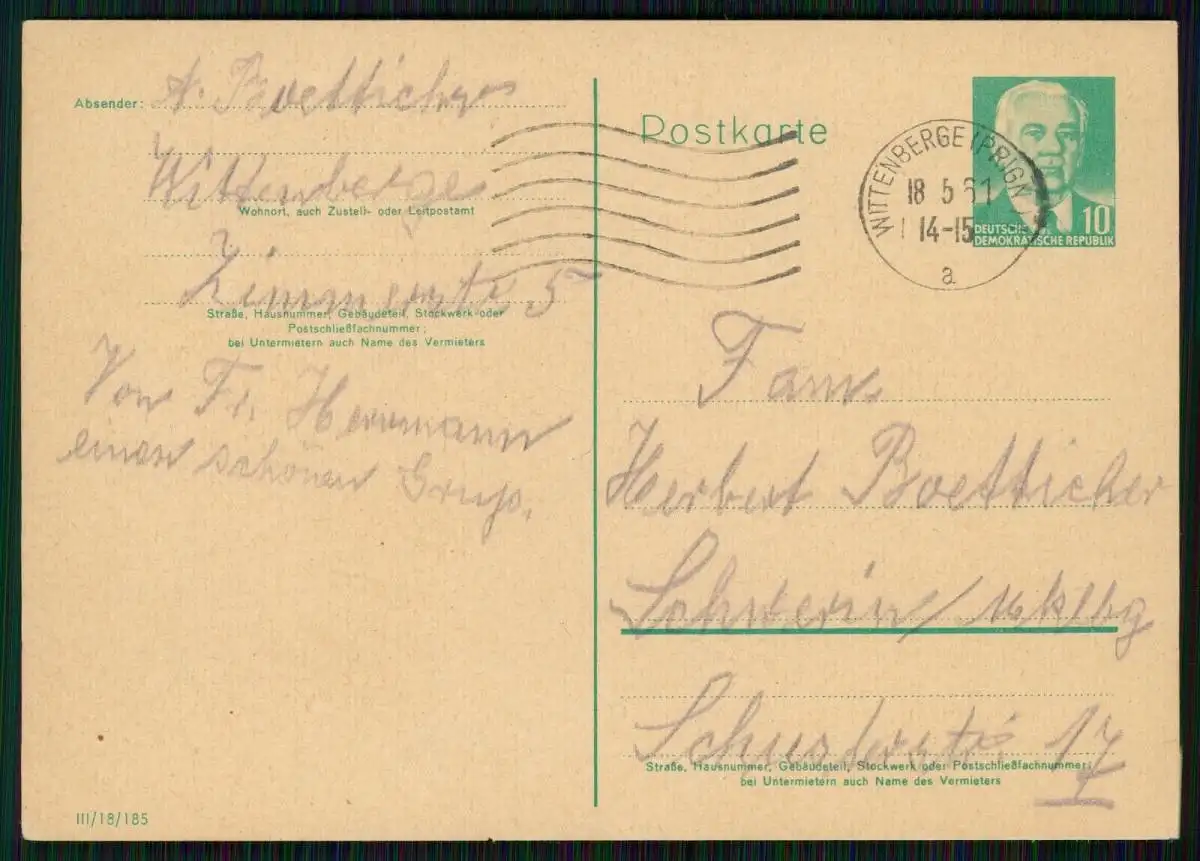 Absender: A. Boetticher
Wittenberge
Wohnort, auch Zustell- oder Leitpostamt
Zimmerstr. 5
Straße, Hausnummer, Gebäudeteil, Stockwerk oder
Postschließfachnummer;
bei Untermietern auch Name des Vermieters
Von Fr. Herrmann
einen schönen Gruß.
III/18/185
Postkarte
WITTENBERGE (PRIGN
18 5 61
14-15
a
10
DEUTSCHE
DEMOKRATISCHE REPUBLIK
Fam.
Herbert Boetticher
Schwerin / Mklbg
Schusterstr. 17
Straße, Hausnummer, Gebäudeteil, Stockwerk oder Postschließfachnummer;
bei Untermietern auch Name des Vermieters